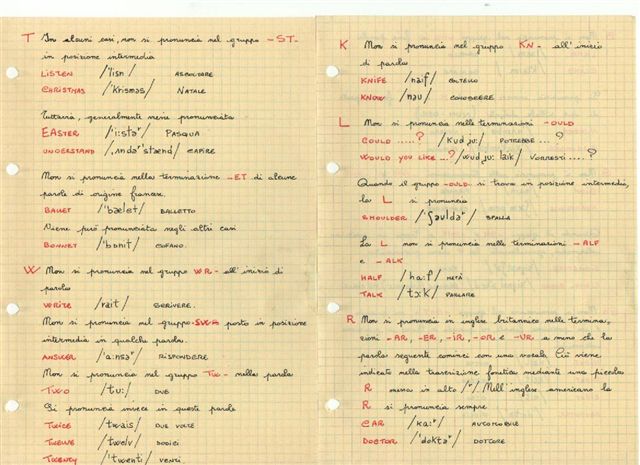 T In alcuni casi, non si pronuncia nel gruppo -ST-
in posizione intermedia
LISTEN /'lisn/ ASCOLTARE
CHRISTMAS /'krisməs/ NATALE
Tuttavia, generalmente viene pronunciata
EASTER /'i:stəʳ/ PASQUA
UNDERSTAND /ˌʌndə'stænd/ CAPIRE
Non si pronuncia nella terminazione -ET di alcune
parole di origine francese.
BALLET /'bælei/ BALLETTO
Viene però pronunciata negli altri casi
BONNET /'bɒnit/ COFANO.
W Non si pronuncia nel gruppo WR- all'inizio di
parola
WRITE /rait/ SCRIVERE.
Non si pronuncia nel gruppo -SWE- posto in posizione
intermedia in qualche parola.
ANSWER /'a:nsəʳ/ RISPONDERE
Non si pronuncia nel gruppo TW- nella parola
TWO /tu:/ DUE
Si pronuncia invece in queste parole
TWICE /twais/ DUE VOLTE
TWELVE /twelv/ DODICI
TWENTY /'twenti/ VENTI.
K Non si pronuncia nel gruppo KN- all'inizio
di parola
KNIFE /naif/ COLTELLO
KNOW /nəu/ CONOSCERE
L Non si pronuncia nelle terminazioni -OULD
COULD .....? /kud ju:/ POTREBBE ...?
WOULD YOU LIKE ..? /wud ju: laik/ VORRESTI ....?
Quando il gruppo -OULD- si trova in posizione intermedia,
la L si pronuncia
SHOULDER /'ʃəuldəʳ/ SPALLA
La L non si pronuncia nelle terminazioni -ALF
e -ALK
HALF /ha:f/ METÀ
TALK /tɔ:k/ PARLARE
R Non si pronuncia in inglese britannico nelle termina,
zioni -AR, -ER, -IR, -OR e -UR a meno che la
parola seguente cominci con una vocale. Ciò viene
indicato nella trascrizione fonetica mediante una piccola
R messa in alto /ʳ/ Nell'inglese americano la
R si pronuncia sempre
CAR /ka:ʳ/ AUTOMOBILE
DOCTOR /'dɒktəʳ/ DOTTORE